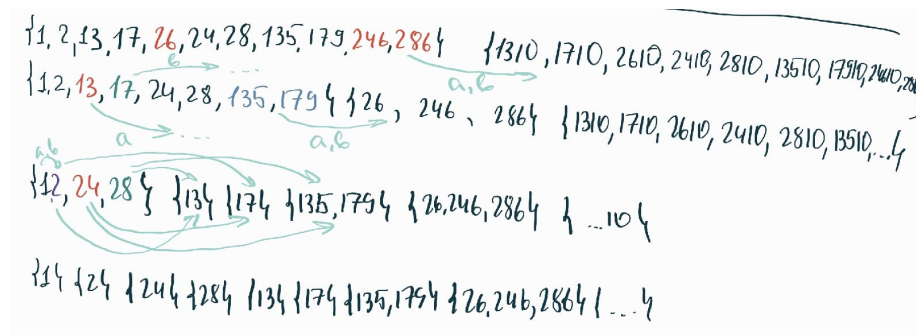 {1, 2, 13, 17, 26, 24, 28, 135, 179, 246, 286} {1310, 1710, 2610, 2410, 2810, 13510, 17910, 24610, 28
в ... a, в
{1, 2, 13, 17, 24, 28, 135, 179} {26, 246, 286} {1310, 1710, 2610, 2410, 2810, 13510, ...}
a, в a ... a, в
{1, 2, 24, 28} {13} {17} {135, 179} {26, 246, 286} { ...10}
{1} {2} {24} {28} {13} {17} {135, 179} {26, 246, 286} { ... }